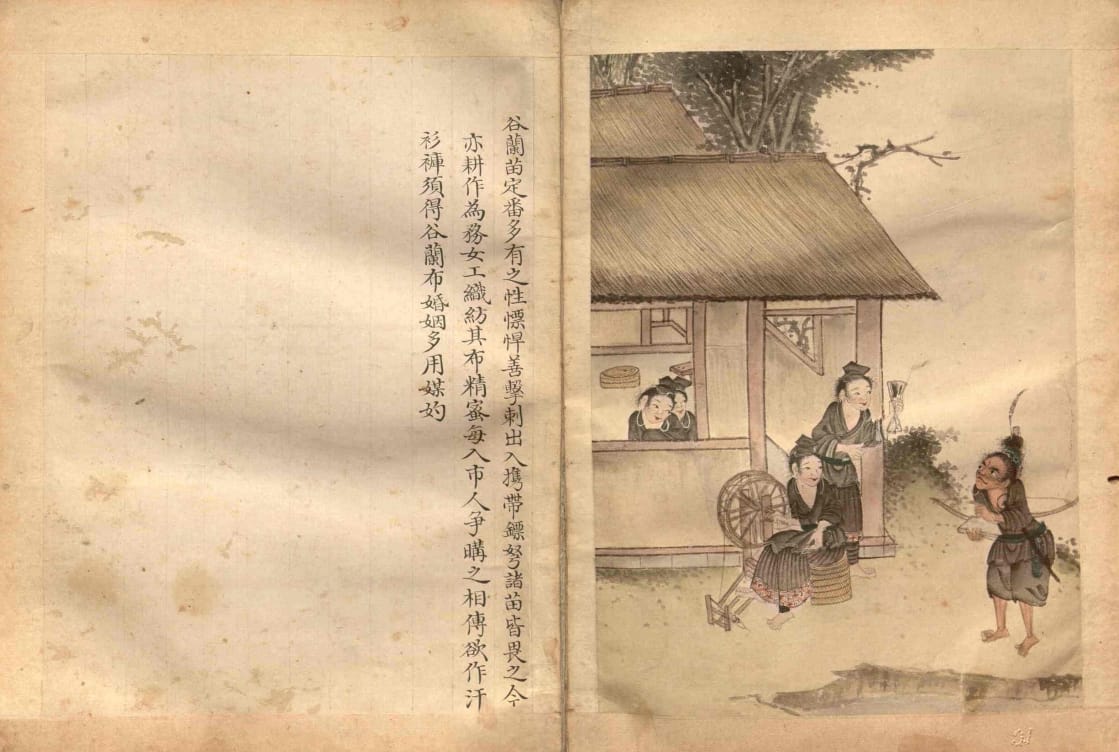 谷蘭苗定番多有之性慓悍善擊刺出入攜帶鏢弩諸苗皆畏之今
亦耕作為務女工織紡其布精蜜每入市人爭購之相傳欲作汗
衫褲須得谷蘭布婚姻多用媒妁
31